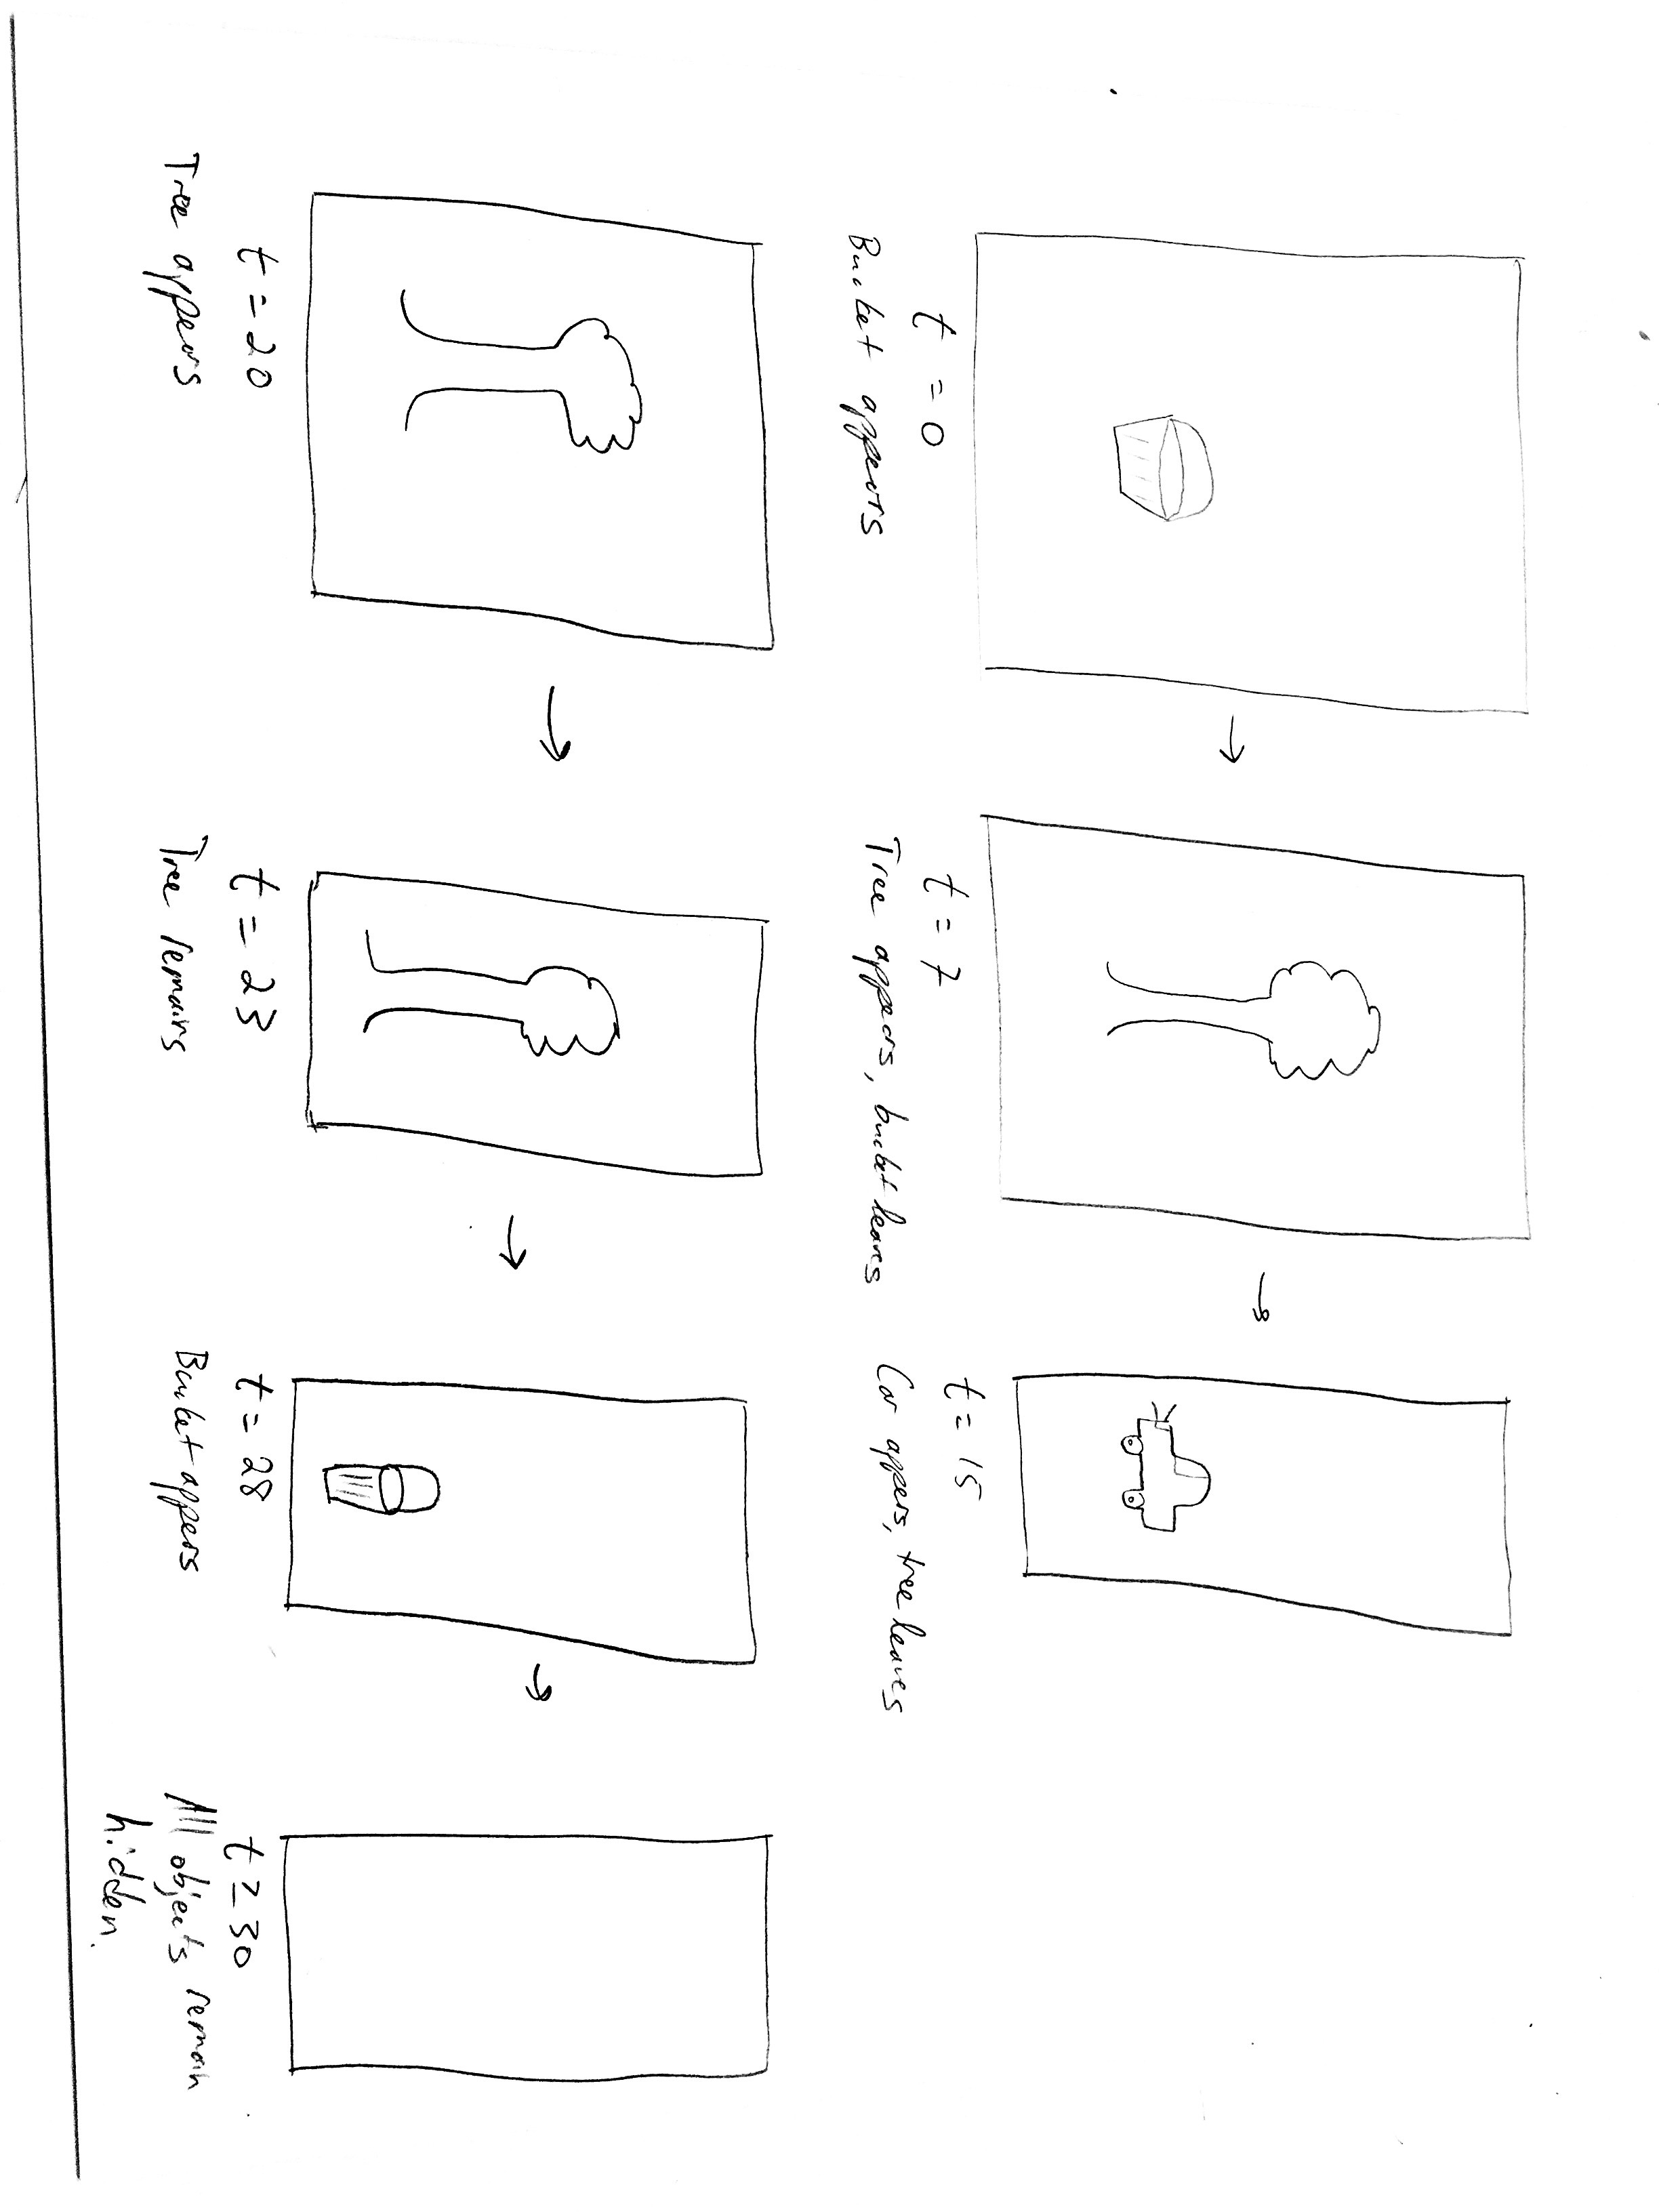 t = 0
Bucket appears
t = 7
Tree appears, bucket leaves
t = 15
Car appers, tree leaves
t = 20
Tree appears
t = 23
Tree remains
t = 28
Bucket appers
t ≥ 30
All objects remain
hidden.